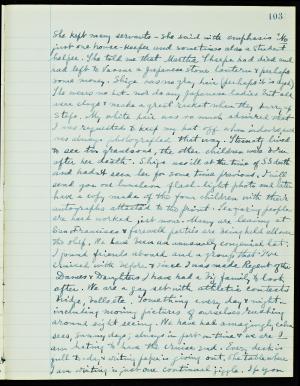 103
She kept many servants - she said with emphasis "No
just one house-keeper and sometimes also a student
helper. She told me that Martha Sharpe had died and
had left to Vassar a Japanese stone lantern & perhaps
some money. Shige has no gray hair (perhaps it is dyed)
She wears no hat. nor do any Japanese ladies but all
wear clogs & make a great racket when they hurry up
steps. My white hair was so much admired that
I was requested to keep my hat off when indoors, and
was always photographed that way. Stematz lived
to see ten grandsons, the other children were born
after her death. Shige was ill at the time of S's death
and hadn't seen her for some time previous. I will
send you one luncheon flash-light photo and later
have a copy made of the four children with their
autographs attached to the print. The young people
are hard worked just now. Many are leaving at
San Francisco & farewell parties are being held all over
the ship. We have been an unusually congenial lot.
I found friends aboard and a group that I've
cruised with before & since I was made Regent of the
Dames & Daughters I have had a big family to look
after. We are a gay set with athletic contests
Bridge, Ballots. Something every day & night -
including moving pictures of ourselves rushing
around sight seeing. We have had amazingly calm
seas, sunny days, always in port on time & we are
hating to have the cruise end. Every desk is
full to-day & writing paper is giving out, the table where
I am writing is just one continual jiggle. If you